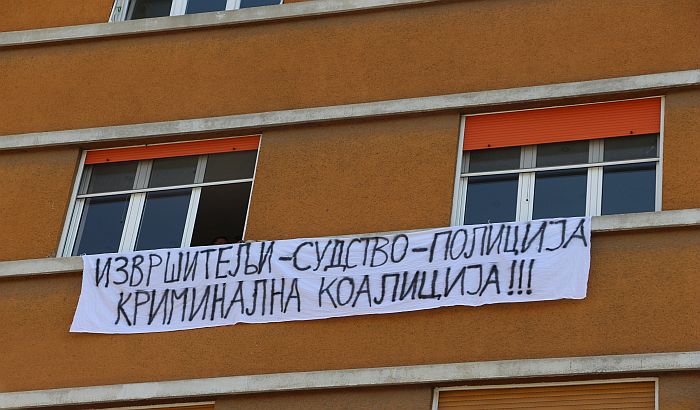 ИЗВРШИТЕЉИ-СУДСТВО-ПОЛИЦИЈА
КРИМИНАЛНА КОАЛИЦИЈА!!!